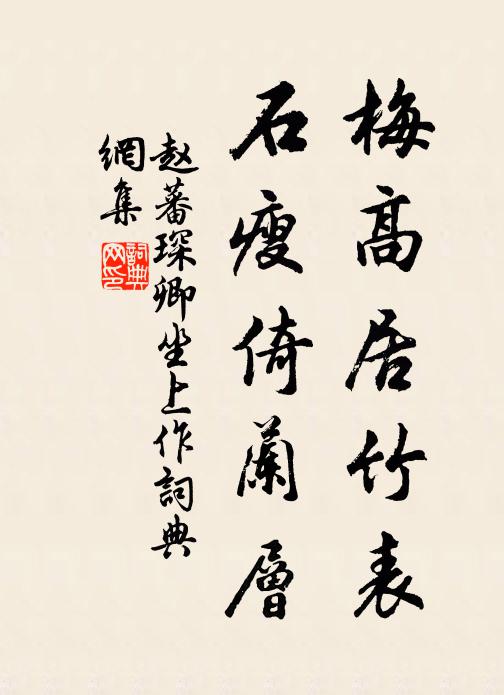 梅高居竹表
石瘦倚蘭層
赵蕃琛卿坐上作詞典
網集
詞典网印